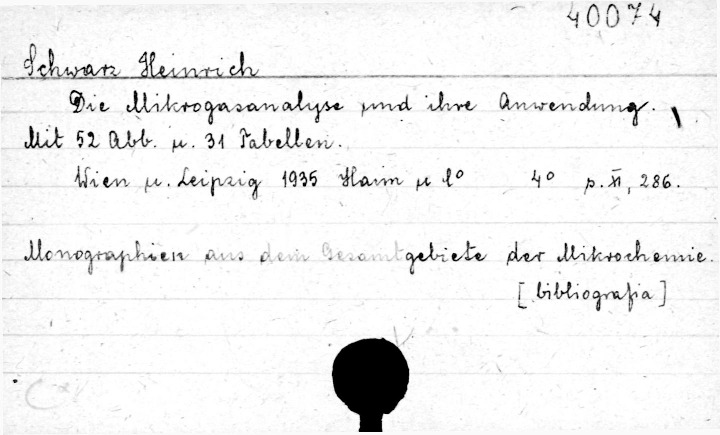 40074
Schwarz Heinrich
Die Mikrogasanalyse und ihre Anwendung.
Mit 52 Abb. u. 31 Tabellen.
Wien u. Leipzig 1935 Haim u Co 4° p. XI, 286.
Monographien aus dem Gesamtgebiete der Mikrochemie.
[bibliografia]